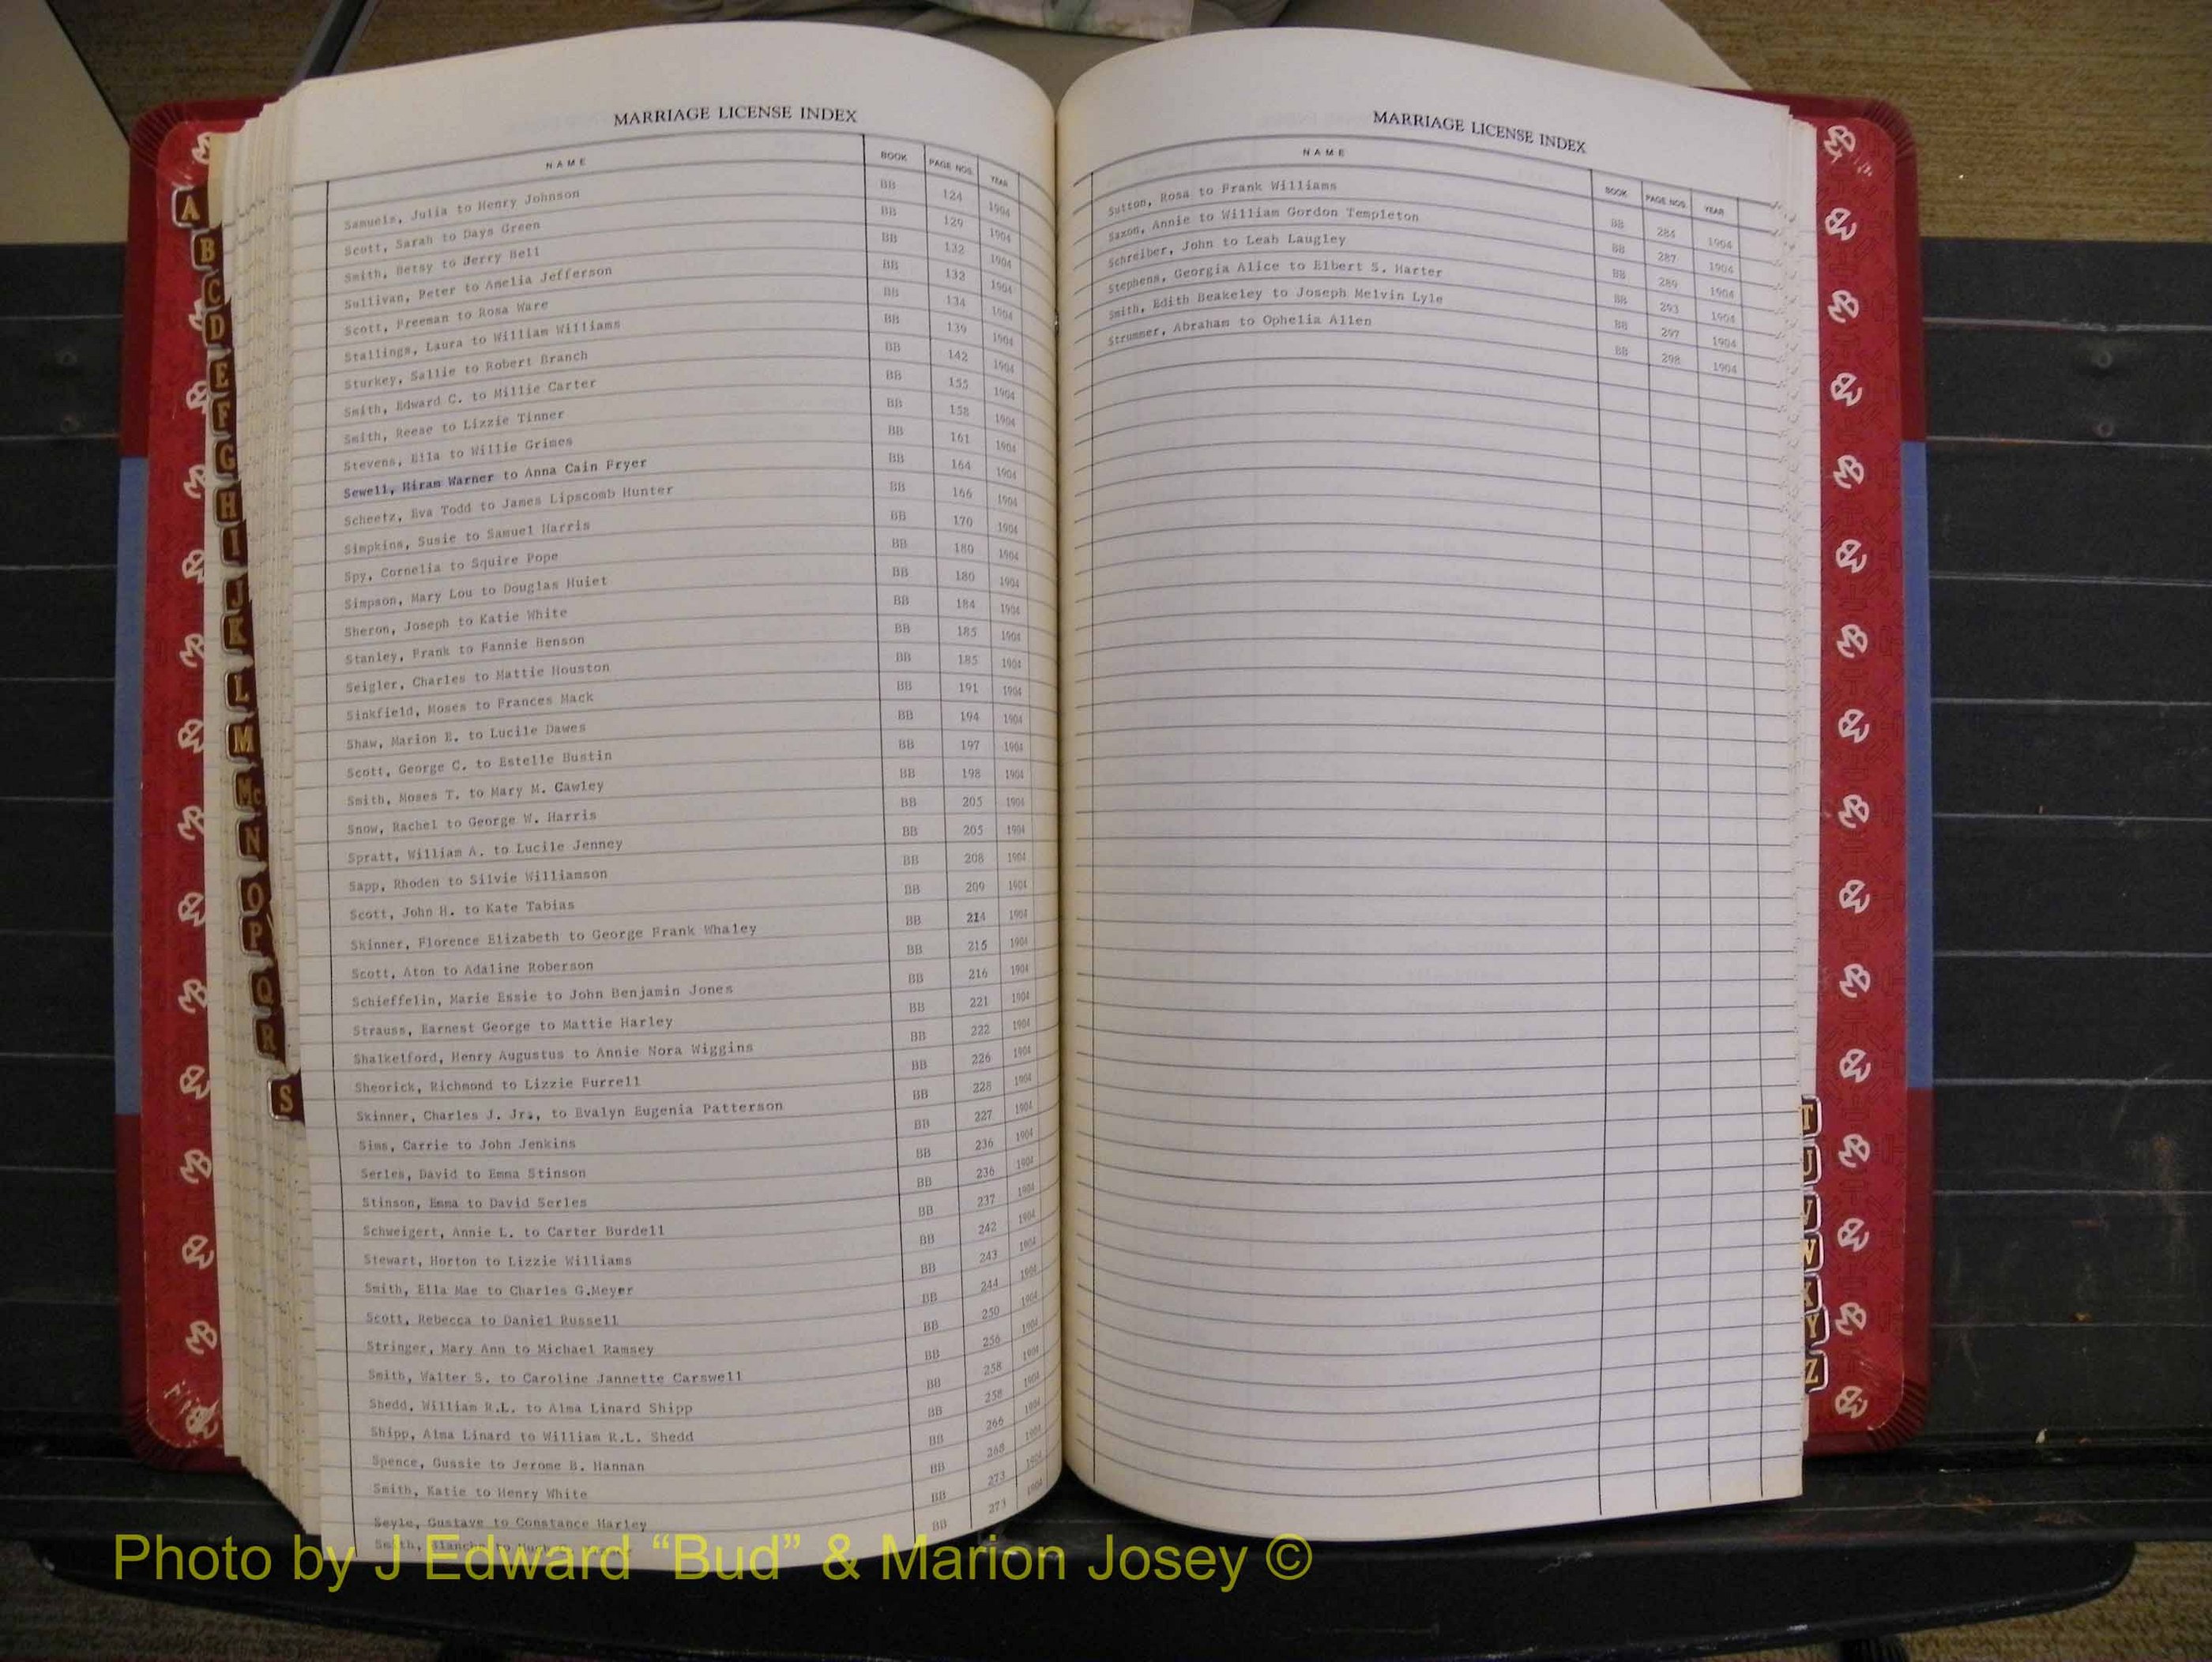 MARRIAGE LICENSE INDEX
NAME BOOK PAGE NOS. YEAR
Samuels, Julia to Henry Johnson BB 124 1904
Scott, Sarah to Days Green BB 129 1904
Smith, Betsy to Jerry Bell BB 132 1904
Sullivan, Peter to Amelia Jefferson BB 132 1904
Scott, Freeman to Rosa Ware BB 134 1904
Stallings, Laura to William Williams BB 139 1904
Sturkey, Sallie to Robert Branch BB 142 1904
Smith, Edward C. to Millie Carter BB 155 1904
Smith, Reese to Lizzie Tinner BB 158 1904
Stevens, Ella to Willie Grimes BB 161 1904
Sewell, Hiram Warner to Anna Cain Fryer BB 164 1904
Scheetz, Eva Todd to James Lipscomb Hunter BB 166 1904
Simpkins, Susie to Samuel Harris BB 170 1904
Spy, Cornelia to Squire Pope BB 180 1904
Simpson, Mary Lou to Douglas Huiet BB 180 1904
Sheron, Joseph to Katie White BB 184 1904
Stanley, Frank to Fannie Benson BB 185 1904
Seigler, Charles to Mattie Houston BB 185 1904
Sinkfield, Moses to Frances Mack BB 191 1904
Shaw, Marion E. to Lucile Dawes BB 194 1904
Scott, George C. to Estelle Bustin BB 197 1904
Smith, Moses T. to Mary M. Cawley BB 198 1904
Snow, Rachel to George W. Harris BB 205 1904
Spratt, William A. to Lucile Jenney BB 205 1904
Sapp, Rhoden to Silvie Williamson BB 208 1904
Scott, John H. to Kate Tabias BB 209 1904
Skinner, Florence Elizabeth to George Frank Whaley BB 214 1904
Scott, Aton to Adaline Roberson BB 215 1904
Schieffelin, Marie Essie to John Benjamin Jones BB 216 1904
Strauss, Earnest George to Mattie Harley BB 221 1904
Shalkelford, Henry Augustus to Annie Nora Wiggins BB 222 1904
Sheorick, Richmond to Lizzie Furrell BB 226 1904
Skinner, Charles J. Jr., to Evalyn Eugenia Patterson BB 228 1904
Sims, Carrie to John Jenkins BB 227 1904
Serles, David to Emma Stinson BB 236 1904
Stinson, Emma to David Serles BB 236 1904
Schweigert, Annie L. to Carter Burdell BB 237 1904
Stewart, Horton to Lizzie Williams BB 242 1904
Smith, Ella Mae to Charles G.Meyer BB 243 1904
Scott, Rebecca to Daniel Russell BB 244 1904
Stringer, Mary Ann to Michael Ramsey BB 250 1904
Smith, Walter S. to Caroline Jannette Carswell BB 256 1904
Shedd, William R.L. to Alma Linard Shipp BB 258 1904
Shipp, Alma Linard to William R.L. Shedd BB 258 1904
Spence, Gussie to Jerome B. Hannan BB 266 1904
Smith, Katie to Henry White BB 268 1904
Seyle, Gustave to Constance Harley BB 273 1904
Smith, Blanche to BB 273 1904
MARRIAGE LICENSE INDEX
NAME BOOK PAGE NOS. YEAR
Sutton, Rosa to Frank Williams BB 284 1904
Saxon, Annie to William Gordon Templeton BB 287 1904
Schreiber, John to Leah Laugley BB 289 1904
Stephens, Georgia Alice to Elbert S. Harter BB 293 1904
Smith, Edith Beakeley to Joseph Melvin Lyle BB 297 1904
Strummer, Abraham to Ophelia Allen BB 298 1904
A
B
C
D
E
F
G
H
I
J
K
L
M
Mc
N
O
P
Q
R
S
T
U
V
W
X
Y
Z
Photo by J Edward “Bud” & Marion Josey ©